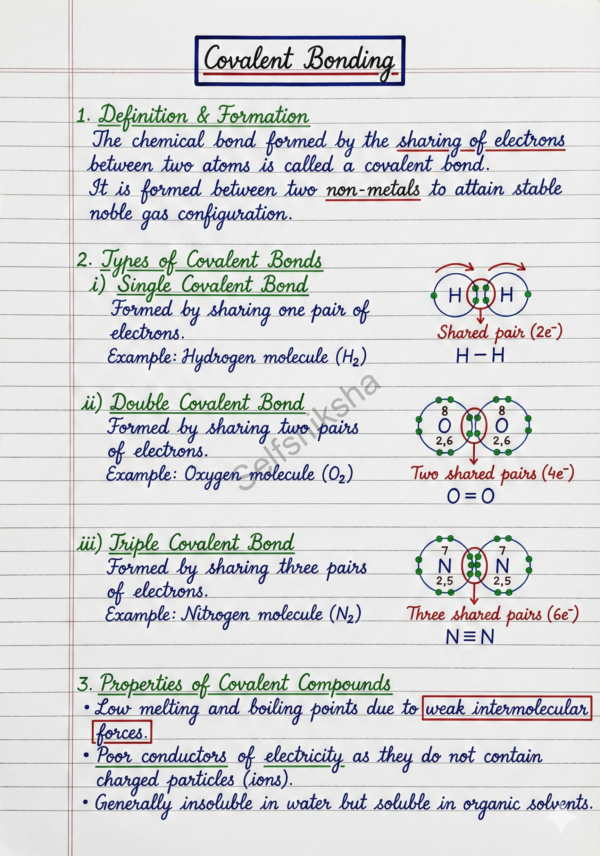 Covalent Bonding
1. Definition & Formation
The chemical bond formed by the sharing of electrons
between two atoms is called a covalent bond.
It is formed between two non-metals to attain stable
noble gas configuration.
2. Types of Covalent Bonds
i) Single Covalent Bond
Formed by sharing one pair of
electrons.
Example: Hydrogen molecule (H₂)
H H
Shared pair (2e⁻)
H – H
ii) Double Covalent Bond
Formed by sharing two pairs
of electrons.
Example: Oxygen molecule (O₂)
8 8
O O
2,6 2,6
Two shared pairs (4e⁻)
O = O
iii) Triple Covalent Bond
Formed by sharing three pairs
of electrons.
Example: Nitrogen molecule (N₂)
7 7
N N
2,5 2,5
Three shared pairs (6e⁻)
N ≡ N
3. Properties of Covalent Compounds
• Low melting and boiling points due to weak intermolecular
forces.
• Poor conductors of electricity as they do not contain
charged particles (ions).
• Generally insoluble in water but soluble in organic solvents.
Selfshiksha